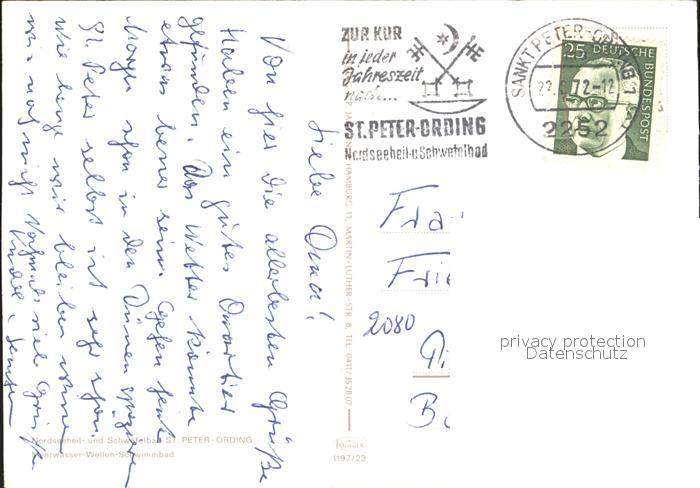 Liebe Oma!
Von hier die allerbesten Grüße
Haben ein gutes Quartier
gefunden. Das Wetter könnte
etwas besser sein. Gehen heute
Morgen schon in den Dünen spazieren
St. Peter selbst ist sehr schön.
Wie lange wir bleiben können
wir noch nicht. Nochmals viele Grüße
ZUR KUR
in jeder
Jahreszeit
nach...
ST. PETER-ORDING
Nordseeheil-u Schwefelbad
SANKT PETER-ORDING 1
22.6.72-12
2252
25 DEUTSCHE
BUNDESPOST
HAMBURG 11, MARTIN-LUTHER-STR. 8, TEL. 0411/352807
Fra
Frie
2080
Pi
B
privacy protection
Datenschutz
Nordseeheil- und Schwefelbad ST. PETER-ORDING
Meerwasser-Wellen-Schwimmbad
1197/23